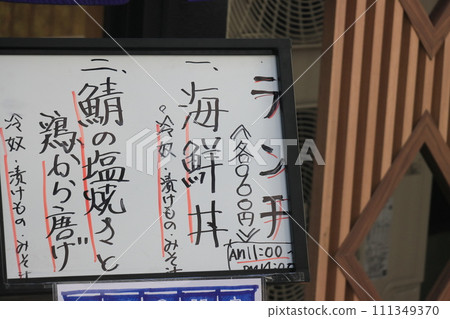 ランチ
《各960円》
AM11:00
一、海鮮丼
冷奴・漬けもの・みそ汁
二、鯖の塩焼きと
鶏から唐げ
冷奴・漬けもの・みそ汁
111349370